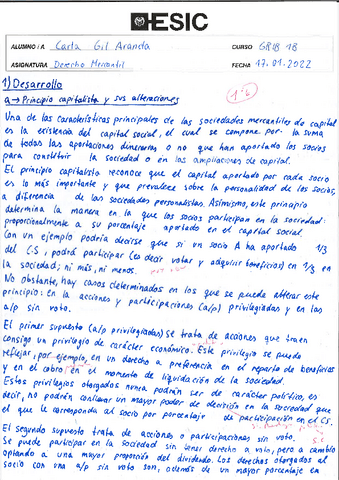 ESIC
ALUMNO / A Carla Gil Aranda CURSO GRB 1B
ASIGNATURA Derecho Mercantil FECHA 17.01.2022
1) Desarrollo
a → Principio capitalista y sus alteraciones
Una de las características principales de las sociedades mercantiles de capital
es la existencia del capital social, el cual se compone por la suma
de todas las aportaciones dinerarias o no que han aportado los socios
para constituir la sociedad o en las ampliaciones de capital.
El principio capitalista reconoce que el capital aportado por cada socio
es lo más importante y que prevalece sobre la personalidad de los socios,
a diferencia de las sociedades personalistas. Asimismo, este principio
determina la manera en la que los socios participan en la sociedad:
proporcionalmente a su porcentaje aportado en el capital social.
Con un ejemplo podría decirse que si un socio A ha aportado 1/3
del C.S, podrá participar (es decir votar y adquirir beneficios) en 1/3 en
la sociedad; ni más, ni menos.
No obstante, hay casos determinados en los que se puede alterar este
principio: En la acciones y participaciones (a/p) privilegiadas y en las
a/p sin voto.
El primer supuesto (a/p privilegiadas) se trata de acciones que traen
consigo un privilegio de carácter económico. Este privilegio se puede
reflejar, por ejemplo, en un derecho a preferencia en el reparto de beneficios
y en el cobro en el momento de liquidación de la sociedad.
Estos privilegios otorgados nunca podrán ser de carácter político, es
decir, no podrán conllevar un mayor poder de decisión en la sociedad que
el que le corresponda al socio por porcentaje de participación en el CS.
El segundo supuesto trata de acciones o participaciones sin voto.
Se puede participar en la sociedad sin tener derecho a voto, pero a cambio
optando a una mayor proporción del dividendo. Los derechos otorgados al
socio con una a/p sin voto son, además de un mayor porcentaje en